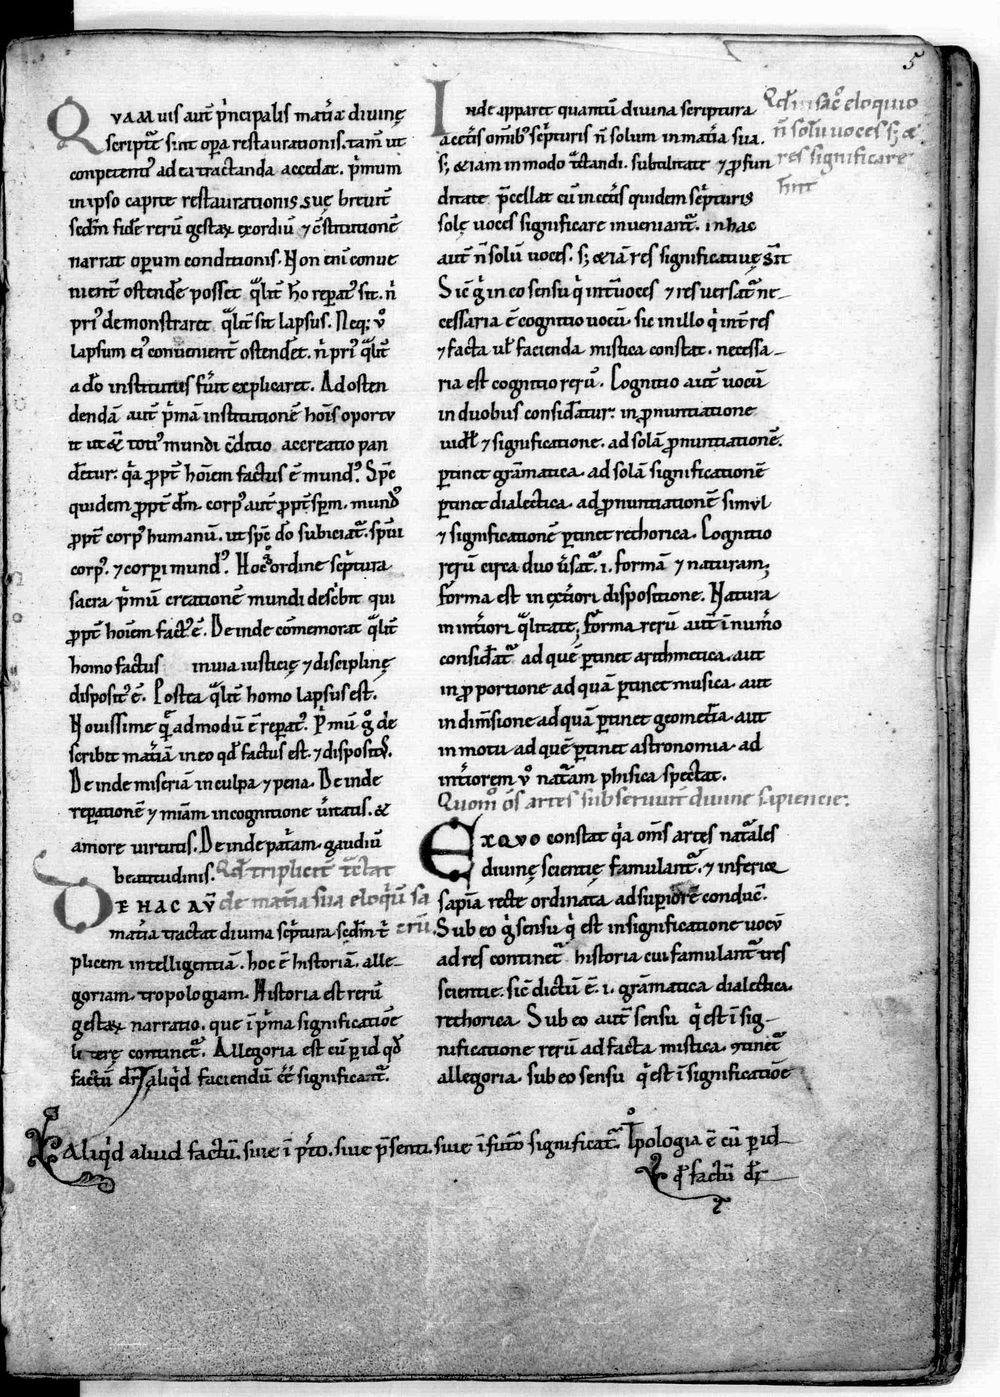 5
QVAMuis aut̄ p̓ncipalis mat̓ia diuinę
scriptᷓe sint oꝑa restaurationis. tam̄ ut
conpetent̓ ad ea tractanda accedat. p̓mum
in ipso capite restaurationis suę breuit̄
sed̄m fidē rerū gestaꝝ exordiū ⁊ c̄stitutionē
narrat operum conditionis. Non eni conue
nient̄ ostendē posset q̄lit̄ hō reparat᷒ sit. n̄
pri᷒ demonstraret q̄lit̄ sit lapsus. Neq; v̊
lapsum ei᷒ conuenient̄ ostend̄et. n̄ pri᷒ q̄lit̄
a dō institutus fūit explicaret. Ad osten
dendā aut̄ p̓mā institutionē hoīs oportv
it ut & toti᷒ mundi c̄ditio ac creatio pan
d̄etur. q̓a ꝓpt̄ hoīem factus ē mund᷒. Spc̄
quidem ꝓpt̄ dm̄. corp᷒ aut̄ ꝓpt̄ spm̄. mund᷒
ꝓpt̄ corp᷒ humanū. ut spc̄ dō subiciat᷑. sp̄ui
corp᷒. ⁊ corpri mund᷒. Hoc ordine sc̓ptura
sacra p̓mū creationē mundi desc̓bit qui
ꝓpt̄ hoīem fact᷒ ē. Deinde cōmemorat q̄lit̄
homo factus in uia iusticię ⁊ disciplinę
disposit᷒ ē. Postea q̄lit̄ homo lapsus est.
Nouissime q̄ admodū ē reꝑat᷒. P̓mū g̊ de
scribit mat̓iā in eo qd̄ factus est. ⁊ disposit᷒.
Deinde miseriā in culpa ⁊ pena. Deinde
reꝑationē ⁊ miām in cognitione ūitatis. &
amore uirtutis. Deinde pat̓am. gaudiū
beatitudinis. Qd̄ triplicit̄ t̄ctat
DE HAC AV̄ de mat̓ia sua eloq̓ū sa
crū.
mat̓ia tractat diuina sc̓ptura sed̄m t̓
plicem intelligentiā. hoc ē historiā. alle-
goriam. tropologiam. Historia est rerū
gestaꝝ narratio. que ī p̓ma significatiōe
litterę continet᷑. Allegoria est cū ꝑ id qd̄
factū dr̄ aliq̓d faciendū c̄t̄ significant᷑.
Inde apparet quantū diuina scriptura
a cet̓is omīb᷒ sc̓pturis n̄ solum in mat̓ia sua.
s; & iam in modo t̄ctandi. subtilitate ⁊ ꝓfun
ditate p̄cellat cū in cet̓is quidem sc̓pturis
solę uoces significare inueniant᷑. in hac
aut̄ n̄ solū uoces. s; & iā res significatiuę sīt
Sic̄ g̓ in eo sensu q̓ int̓ uoces ⁊ res uersat᷑ ne-
cessaria ē cognitio uocū. sic in illo q̓ int̄ res
⁊ facta ul̄ facienda mistica constat. necessa-
ria est cognitio rerū. Cognitio aut̄ uocū
in duobus consid̄atur. in ꝓnuntiatione
uidl̄ ⁊ significatione. ad solā ꝓnuntiationē.
ꝑtinet grāmatica. ad solā significationē
ꝑtinet dialectica. ad ꝓnuntiationē simvl
⁊ significationē ꝑtinet rethorica. Cognitio
rerū circa duo ūsat᷑. i. formā ⁊ naturam;
forma est in ext̓iori dispositione. Natura
in int̓iori q̄litate; forma rerū aut̄ ī num̓o
consid̄at᷑ ad quē ꝑtinet arithmetica. aut
in ꝓportione ad quā ꝑtinet musica. aut
in dim̄sione ad quā ꝑtinet geomet̓ia. aut
in motu. ad quē ꝑtinet astronomia. ad
int̓iorem v̊ nat̓am phisica spectat.
Quom̊ om̄s artes subseruiūt diuine sapiencie.
EX QVO constat q̓a om̄s artes nat̓ales
diuinę scientię famulant᷑. ⁊ inferior
sap̄ia recte ordinata ad superiorē conduc̄.
Sub eo g̓ sensu q̓ est in significatione uocv̄
ad res continet᷑ historia cui famulant᷑ tres
scientie. sic̄ dictū ē. i. grāmatica dialectica.
rethorica. Sub eo aut̄ sensu q̓ est ī sig-
nificatione rerū ad facta mistica. ꝯtinet᷑
allegoria. sub eo sensu q̓ est ī significatiōe
Qd̄ in sac̊ eloquio
n̄ solū uoces s; &
res significare
hn̄t
Aliq̓d aliud factū. siue ī p̓to. siue p̄senti. siue ī fut̓o significat᷑. Tpologia ē cū ꝑ id
qd̄ factū dr̄